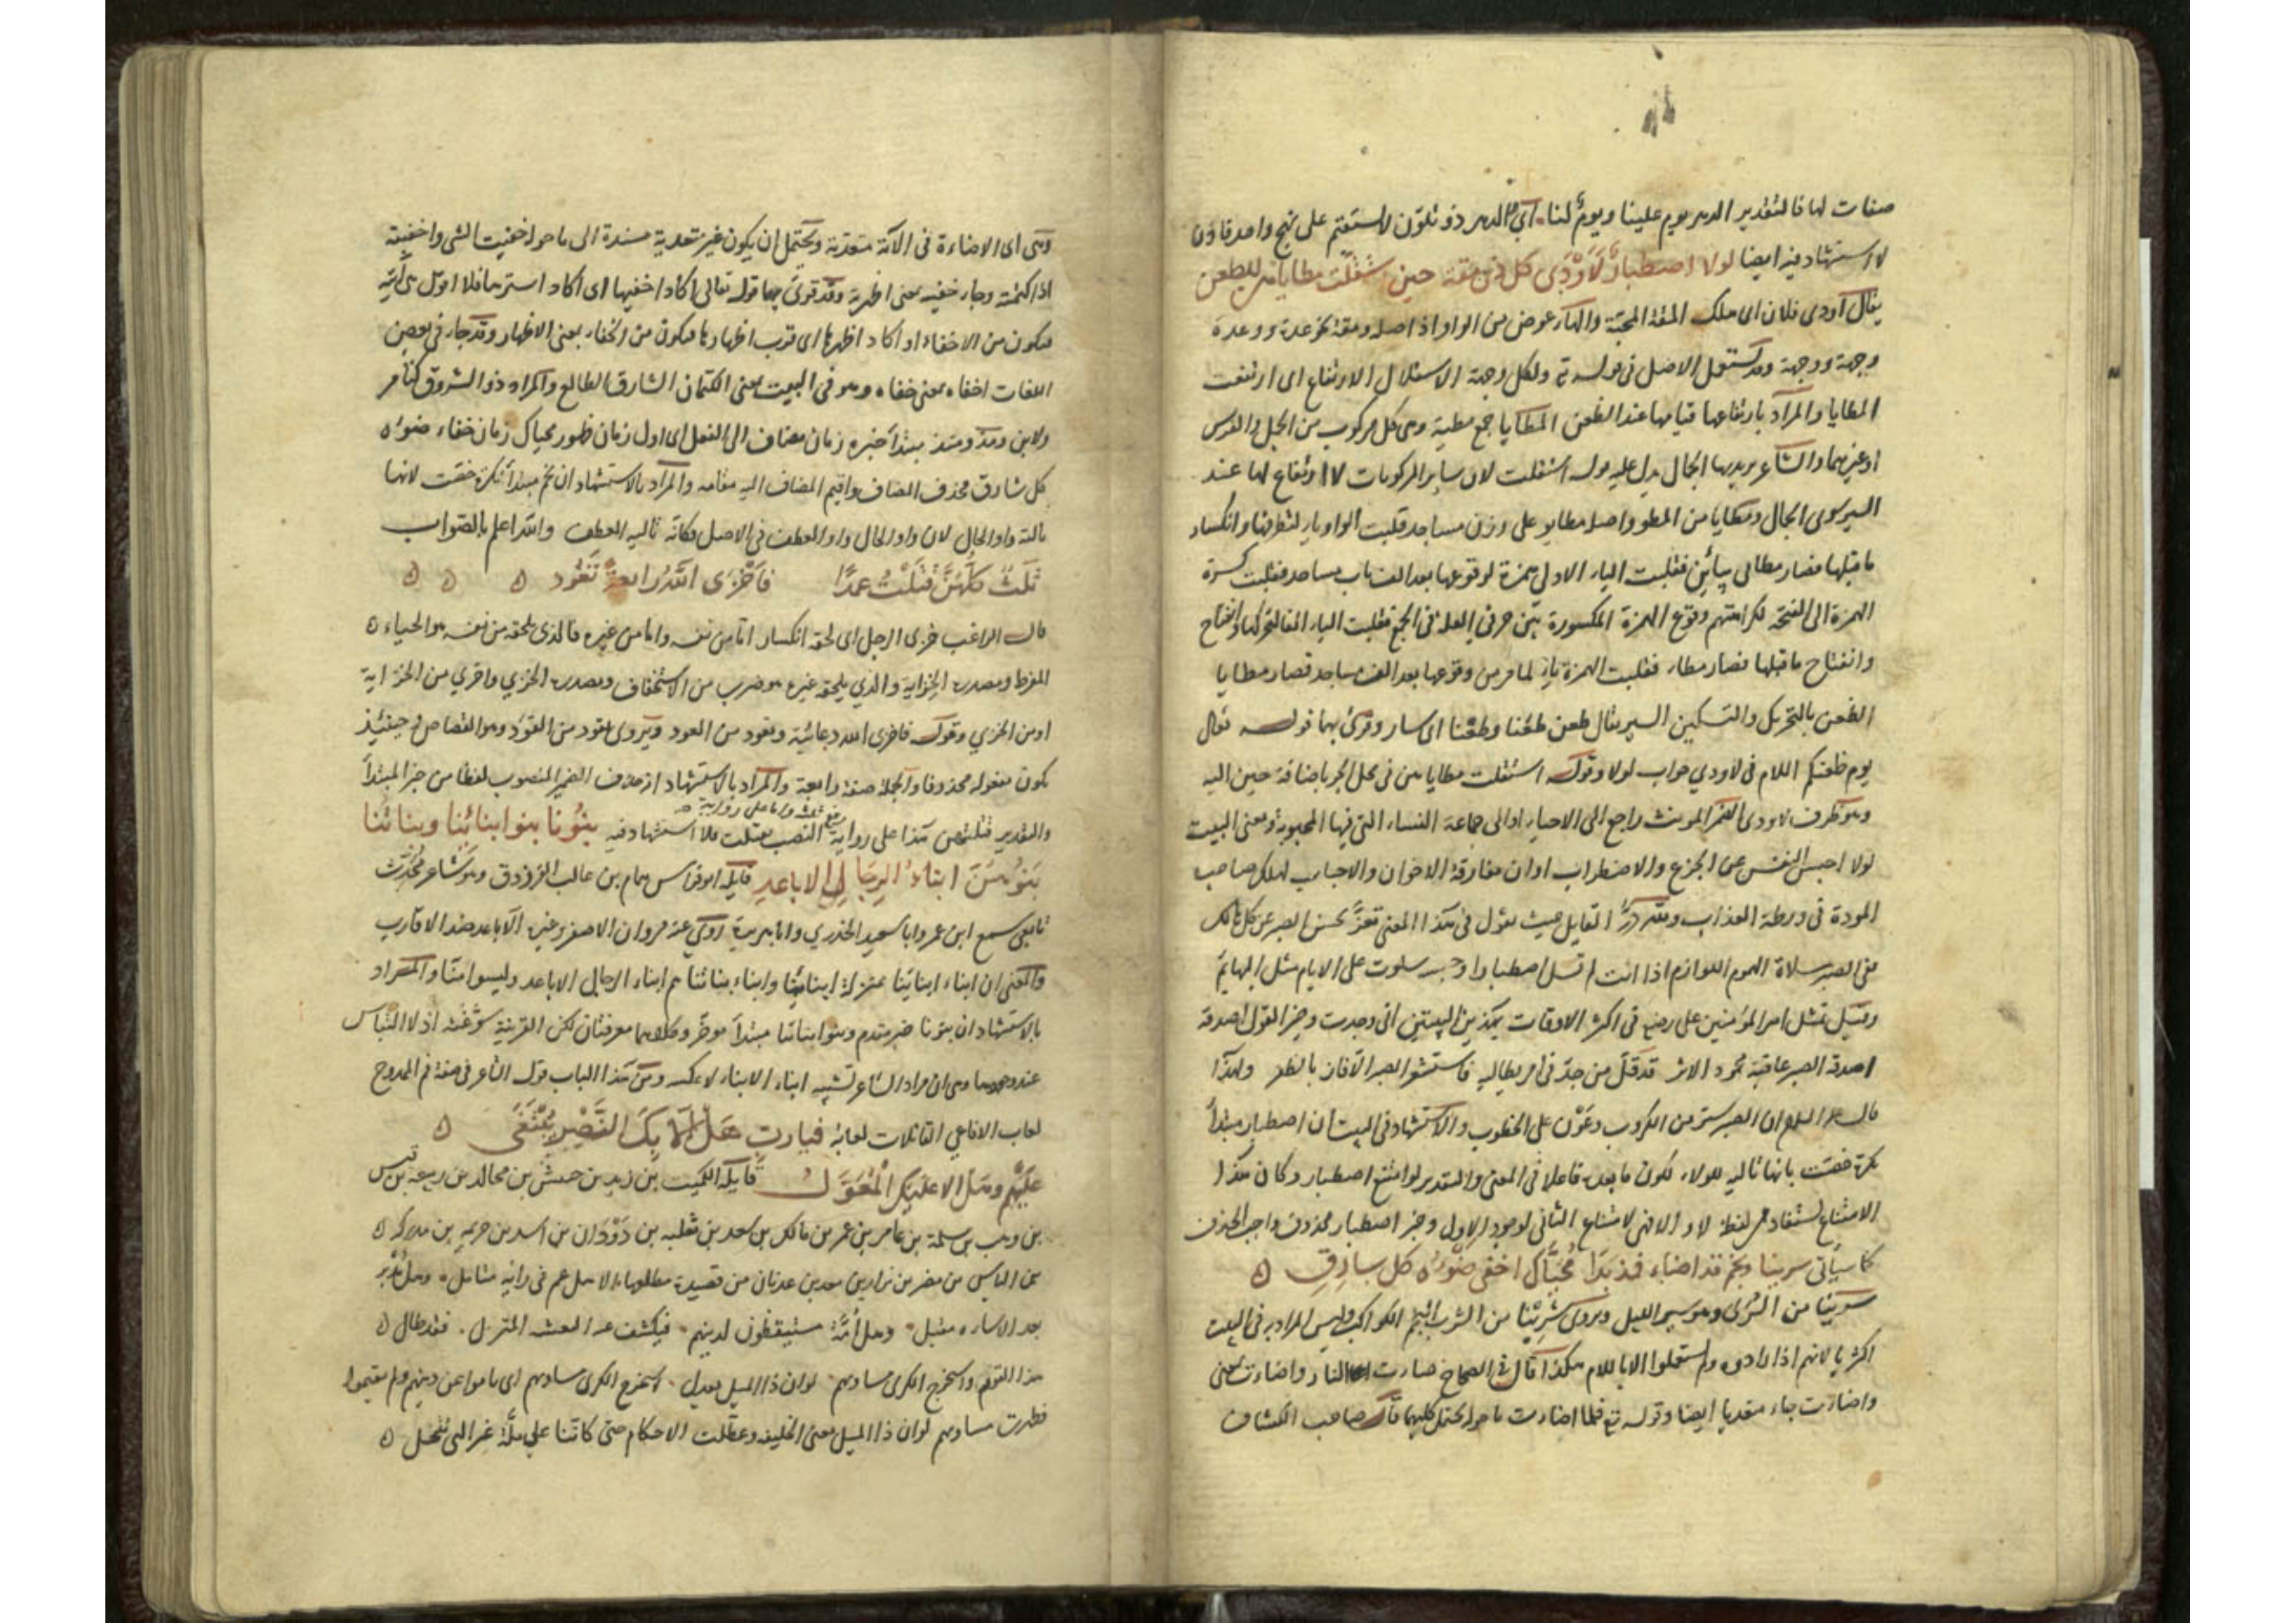 صفات لها فالتقدير الدهر يوم علينا ويوم لنا اي الدهر ذو تلون لا يستقيم على نهج واحد فاذن
لا استشهاد فيه ايضا لولا اصطبار لَأَوْدَى كل ذي مقة حين استقلت مطاياهن للظعن
يقال اودى فلان اى هلك المقة المحبة والهاء عوض من الواو اذ اصله ومقة نحو عدة ووعدة
وجهة ووجهة وقد يستعمل الاصل في قوله تع ولكل وجهة الاستقلال الارتفاع اى ارتفعت
المطايا والمراد بارتفاعها قيامها عند الظعن المطايا جمع مطية وهى كل مركوب من الجمل والفرس
او غيرهما والشاعر يريد بها الجمال يدل عليه قوله استقلت لان ساير المركوبات لا ارتفاع لها عند
السير سوى الجمال ومطايا من المطو واصله مطايو على وزن مساجد قلبت الواو ياء لتطرفها وانكسار
ما قبلها فصار مطايى بيائين فقلبت الياء الاولى همزة لوقوعها بعد الف باب مساجد فقلبت كسرة
الهمزة الى الفتحة لكراهتهم وقوع الهمزة المكسورة بين حرفي العلة في الجمع فقلبت الياء الفا لتحركها وانفتاح
وانفتاح ما قبلها فصار مطاء فقلبت الهمزة ياء لما مر من وقوعها بعد الف مساجد فصار مطايا
الظعن بالتحريك والتسكين السير يقال ظعن ظعنا وظعَنا اى سار وقرئ بهما قوله تعال
يوم ظعنكم اللام في لاودي جواب لولا وقوله استقلت مطاياهن في محل الجر باضافة حين اليه
وهو ظرف لاودى الضمير المونث راجع الى الاحباء او الى جماعة النساء التي فيها المحبوبة ومعنى البيت
لولا احبس النفس عن الجزع والاضطراب اوان مفارقة الاخوان والاحباب لهلك صاحب
المودة في ورطة العذاب ولله درّ القايل حيث يقول في هذا المعنى تعزَّ بحسن الصبر عن كل هالك
ففى الصبر سلاة الهموم اللوازم اذا انت لم تسل اصطبارا وحسبة سلوت على الايام مثل البهايم
وقيل تمثل امير المؤمنين على رضي في اكثر الاوقات بهذين البيتين انى وجدت وخير القول اصدقه
اصدقه الصبر عاقبة محمود الاثر قد قلّ من جدّ في امر يطالبه فاستشعر الصبر الا فاز بالظفر ولهذا
قال ان الصبر ستر من الكروب وعون على الخطوب والاستشهاد في البيت ان اصطبار مبتدأ
نكرة خصت بانها تالية للولا لكون ما بعده فاعلا في المعنى والتقدير لو امتنع اصطبار وكان هكذا
الامتناع يستفاد من لفظ لا و لامتناع الثانى لوجود الاول وخبر اصطبار محذوف واجب الحذف
كما سيأتى سرينا ونجم قد اضاء فمذ بَدَا مُحَيَّاك اخفى ضوْءُه كل شارقِ
سرينا من السُّرَى وهو سير الليل ويروى شربنا من الشرب النجم الكواكب وليس المراد به في البيت
اكثريا لانهم اذا ارادوه لم يستعملوا الا باللام هكذا قال في الصحاح ضاءت النار واضاءت بمعنى
واضاءت جاء متعديا ايضا وقوله تع فلما اضاءت ما حوله يحتمل كليهما قال صاحب الكشاف
وهى اى الاضاءة في الآية متعدية ويحتمل ان يكون غير متعدية مسندة الى ما حوله خفيت الشى واخفيته
اذا كتمته وجاء خفيته بمعنى اظهرته وقد قرئ بهما قوله تعالى اكاد اخفيها اى اكاد استرها فلا اقول هى آتية
فيكون من الاخفاء او اكاد اظهرها اى قرب اظهارها فيكون من الخفاء بمعنى الاظهار وقد جاء في بعض
اللغات اخفاه بمعنى خفاه وهو في البيت بمعنى الكتمان الشارق الطالع والمراد ذو الشروق كتامر
ولابن ومذ ومنذ مبتدأ خبره زمان مضاف الى الفعل اى اول زمان ظهور محياك زمان خفاء ضوؤه
كل شارق فحذف المضاف واقيم المضاف اليه مقامه والمراد بالاستشهاد ان نجم مبتدأ نكرة خصت لانها
تالية واو الحال لان واو الحال واو العطف في الاصل فكانّه تاليه العطف والله اعلم بالصواب
ثلثٌ كلّهُنَّ قَتَلْتُ عمدًا فاَخْزَى اللهُ رابعةً تَعُود
قال الراغب خزى الرجل اى لحقه انكسار اما من نفسه واما من غيره فالذى يلحقه من نفسه هو الحياء
المفرط ومصدره الخزاية والذي يلحقه غيره هو ضرب من الاستخفاف ومصدره الخزي واخزي من الخزاية
او من الخزي وقوله فاخزى الله دعائية وتعود من العود ويروى تقود من القوَد وهو القصاص فحينئذ
يكون مفعوله محذوفا والجملة صفة رابعة والمراد بالاستشهاد انه حذف الضمير المنصوب لفظا من خبر المبتدأ
والتقدير قتلتهن هذا على رواية رفع ثلث واما على رواية النصب بقتلت فلا استشهاد فيه بنُونا بنو ابنائنا وبناتُنا
بَنُوهُنَّ ابناءُ الرِجال الاباعدِ قايله ابو فراس همام بن غالب الفرزدق وهو شاعر مُحْدَث
تابعى سمع ابن عمر وابا سعيد الخدري وابا هريرة روى عنه مروان الاصفر وغيره الاباعد ضد الاقارب
والمعنى ان ابناء ابنائنا بمنزلة ابنائنا وابناء بناتنا هم ابناء الرجال الاباعد وليسوا منّا والمراد
بالاستشهاد ان بنونا خبر مقدم وبنو ابنائنا مبتدأ موخّر وكلاهما معرفتان لكن القرينة سوّغته اذ لا التباس
عند وجودها وهى ان مراد الشاعر تشبيه ابناء الابناء لا عكسه ومن هذا الباب قول الشاعر في صفة قم الممدوح
لعاب الافاعي القاتلات لعابهُ فيارب هَلْ اِلّا بِكَ النَّصْرُ يُبْتَغَى
عليهم وهل الا عليك الْمُعَوَّلُ قايله الكميت بن زيد بن حبيش بن مجالد بن ربيعه بن قيس
بن وهب بن سلمة بن عامر بن عمر بن مالك بن سعد بن ثعلبه بن دَوْدَان بن اسد بن خزيمه بن مدركه
بن الياس بن مضر بن نزار بن معد بن عدنان من قصيدة مطلعها الا هل عم في رايه متامل وهل مُدْبر
بعد الاساءه مقبل وهل أُمَّةٌ مستيقظون لدينهم فيكشف عنه النعسة المتزمل فقد طال
هذا النوم واستخرج الكرى مساويهم لوان ذا الميل يعدل استخرج الكرى مساويهم اى ناموا عن دينهم ولم يقيموا
فظهرت مساويهم لوان ذا الميل يعنى الخليفه وعطّلت الاحكام حتى كانّنا على ملّة غير التى نتنحل